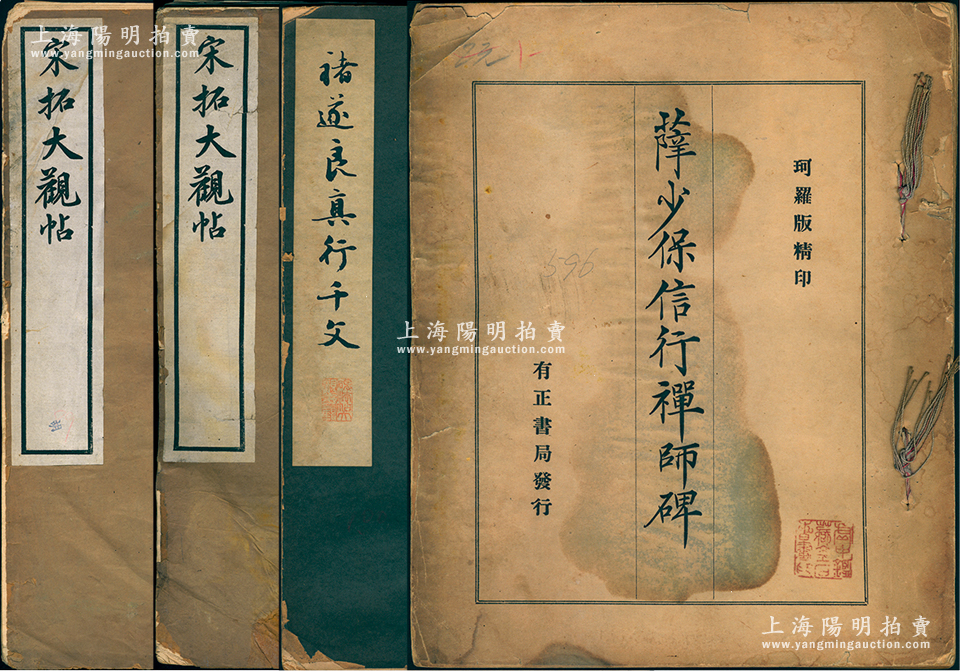 上海陽明拍賣
www.yangmingauction.com
宋拓大觀帖
上海陽明拍賣
www.yangmingauction.com
宋拓大觀帖
褚遂良真行千文
珂羅版精印
薛少保信行禪師碑
有正書局發行
696
上海陽明拍賣
www.yangmingauction.com
上海陽明拍賣
www.yangmingauction.com